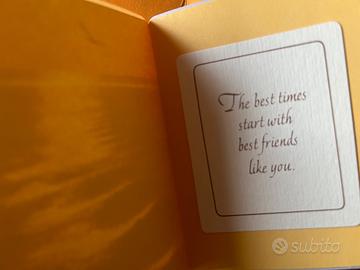 The best times
start with
best friends
like you.
subito